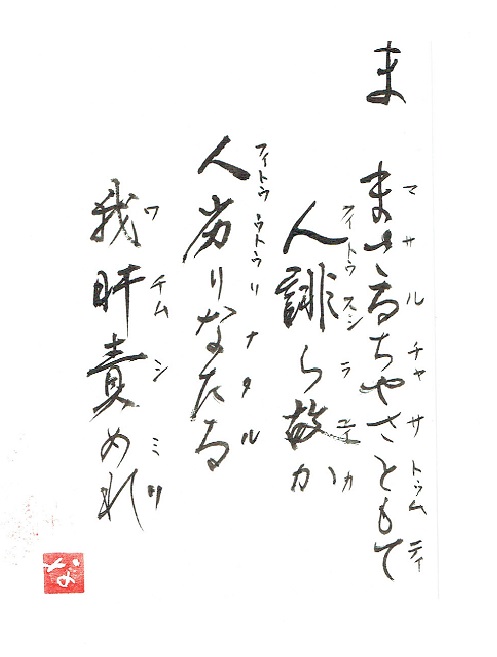 ま
まさるちやさともて
マサルチャサトゥムティ
人誹ら故か
人劣りなたる
フィトゥ ウトゥリ ナタル
我肝責めれ
ワ チム シ ミ リ
な